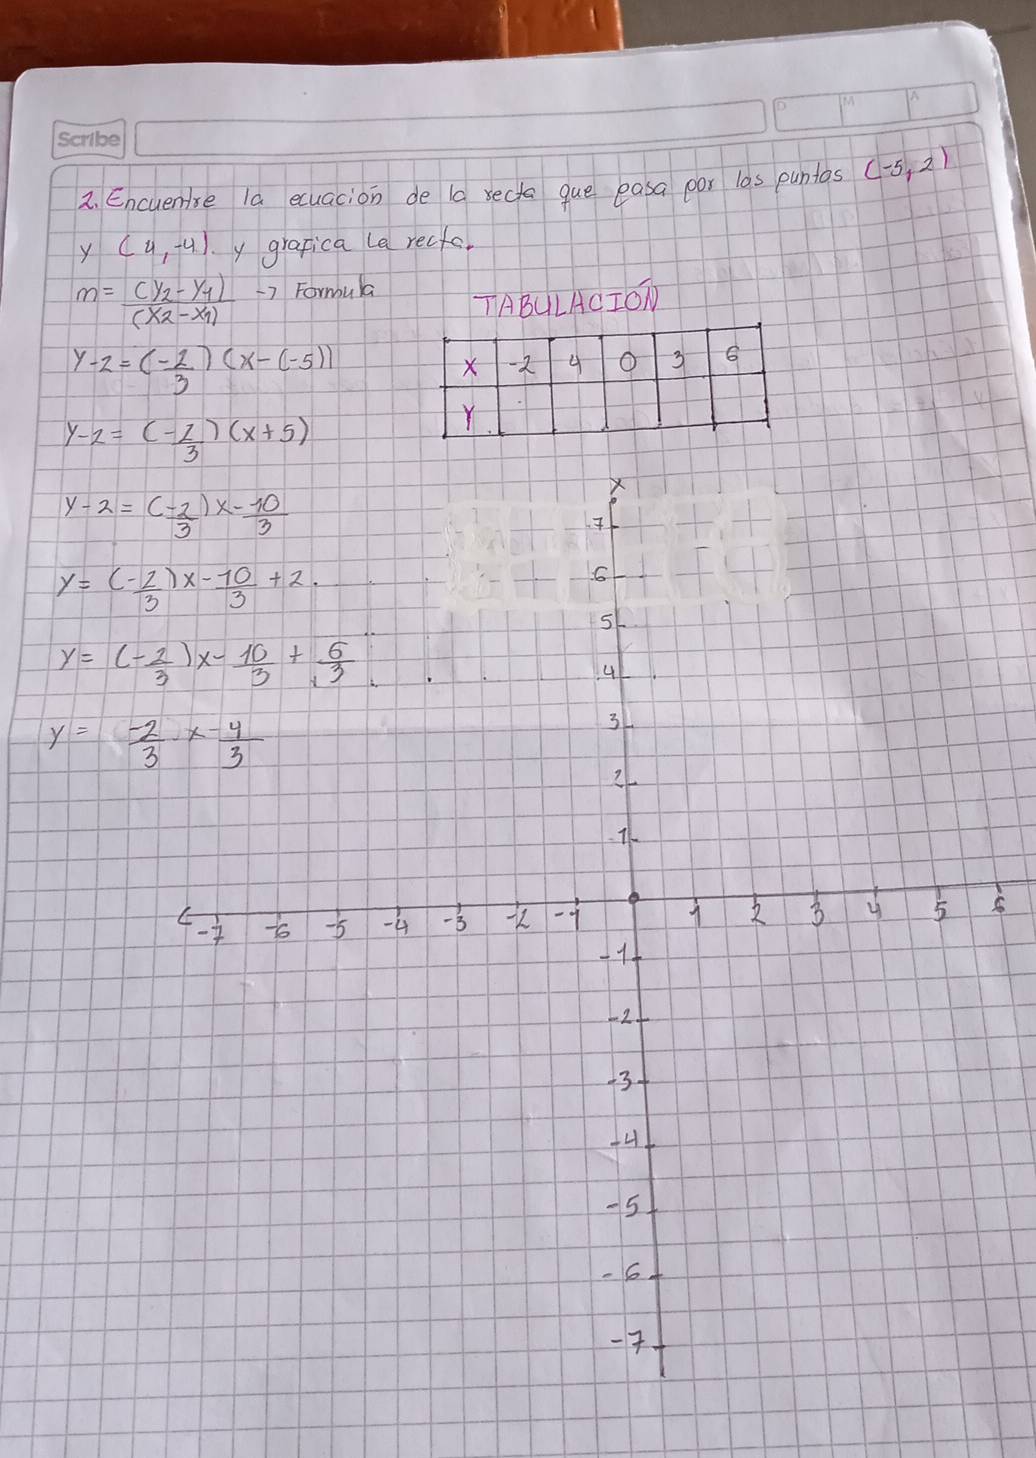 Scribe
D M A
2. Encuentre la ecuación de la recta que pasa por los puntos (-5, 2)
y (4, -4). y grafica la recta.
m = (y2 - y1) / (x2 - x1) -> Formula
y - 2 = (-2/3)(x - (-5))
y - 2 = (-2/3)(x + 5)
y - 2 = (-2/3)x - 10/3
y = (-2/3)x - 10/3 + 2.
y = (-2/3)x - 10/3 + 6/3
y = -2/3 x - 4/3
TABULACIÓN
X -2 4 0 3 6
Y
7
6
5
4
3
2
1
-7 -6 -5 -4 -3 -2 -1 1 2 3 4 5 6
-1
-2
-3
-4
-5
-6
-7